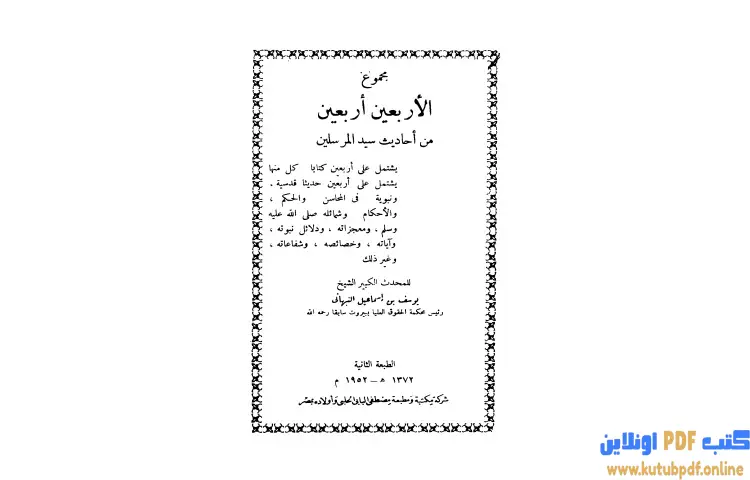 مجموع
الأربعين أربعين
من أحاديث سيد المرسلين
يشتمل على أربعين كتابا كل منها
يشتمل على أربعين حديثا قدسية .
ونبوية فى المحاسن والحكم ،
والأحكام وشمائله صلى الله عليه
وسلم ، ومعجزاته ، ودلائل نبوته ،
وآياته ، وخصائصه ، وشفاعاته ،
وغير ذلك
للمحدث الكبير الشيخ
يوسف بن إسماعيل النبهانى
رئيس محكمة الحقوق العليا ببيروت سابقا رحمه الله
الطبعة الثانية
١٣٧٢ ھ — ١٩٥٢ م
شركة مكتبة ومطبعة مصطفى البابى الحلبى وأولاده بمصر
كتب PDF اونلاين
www.kutubpdf.online